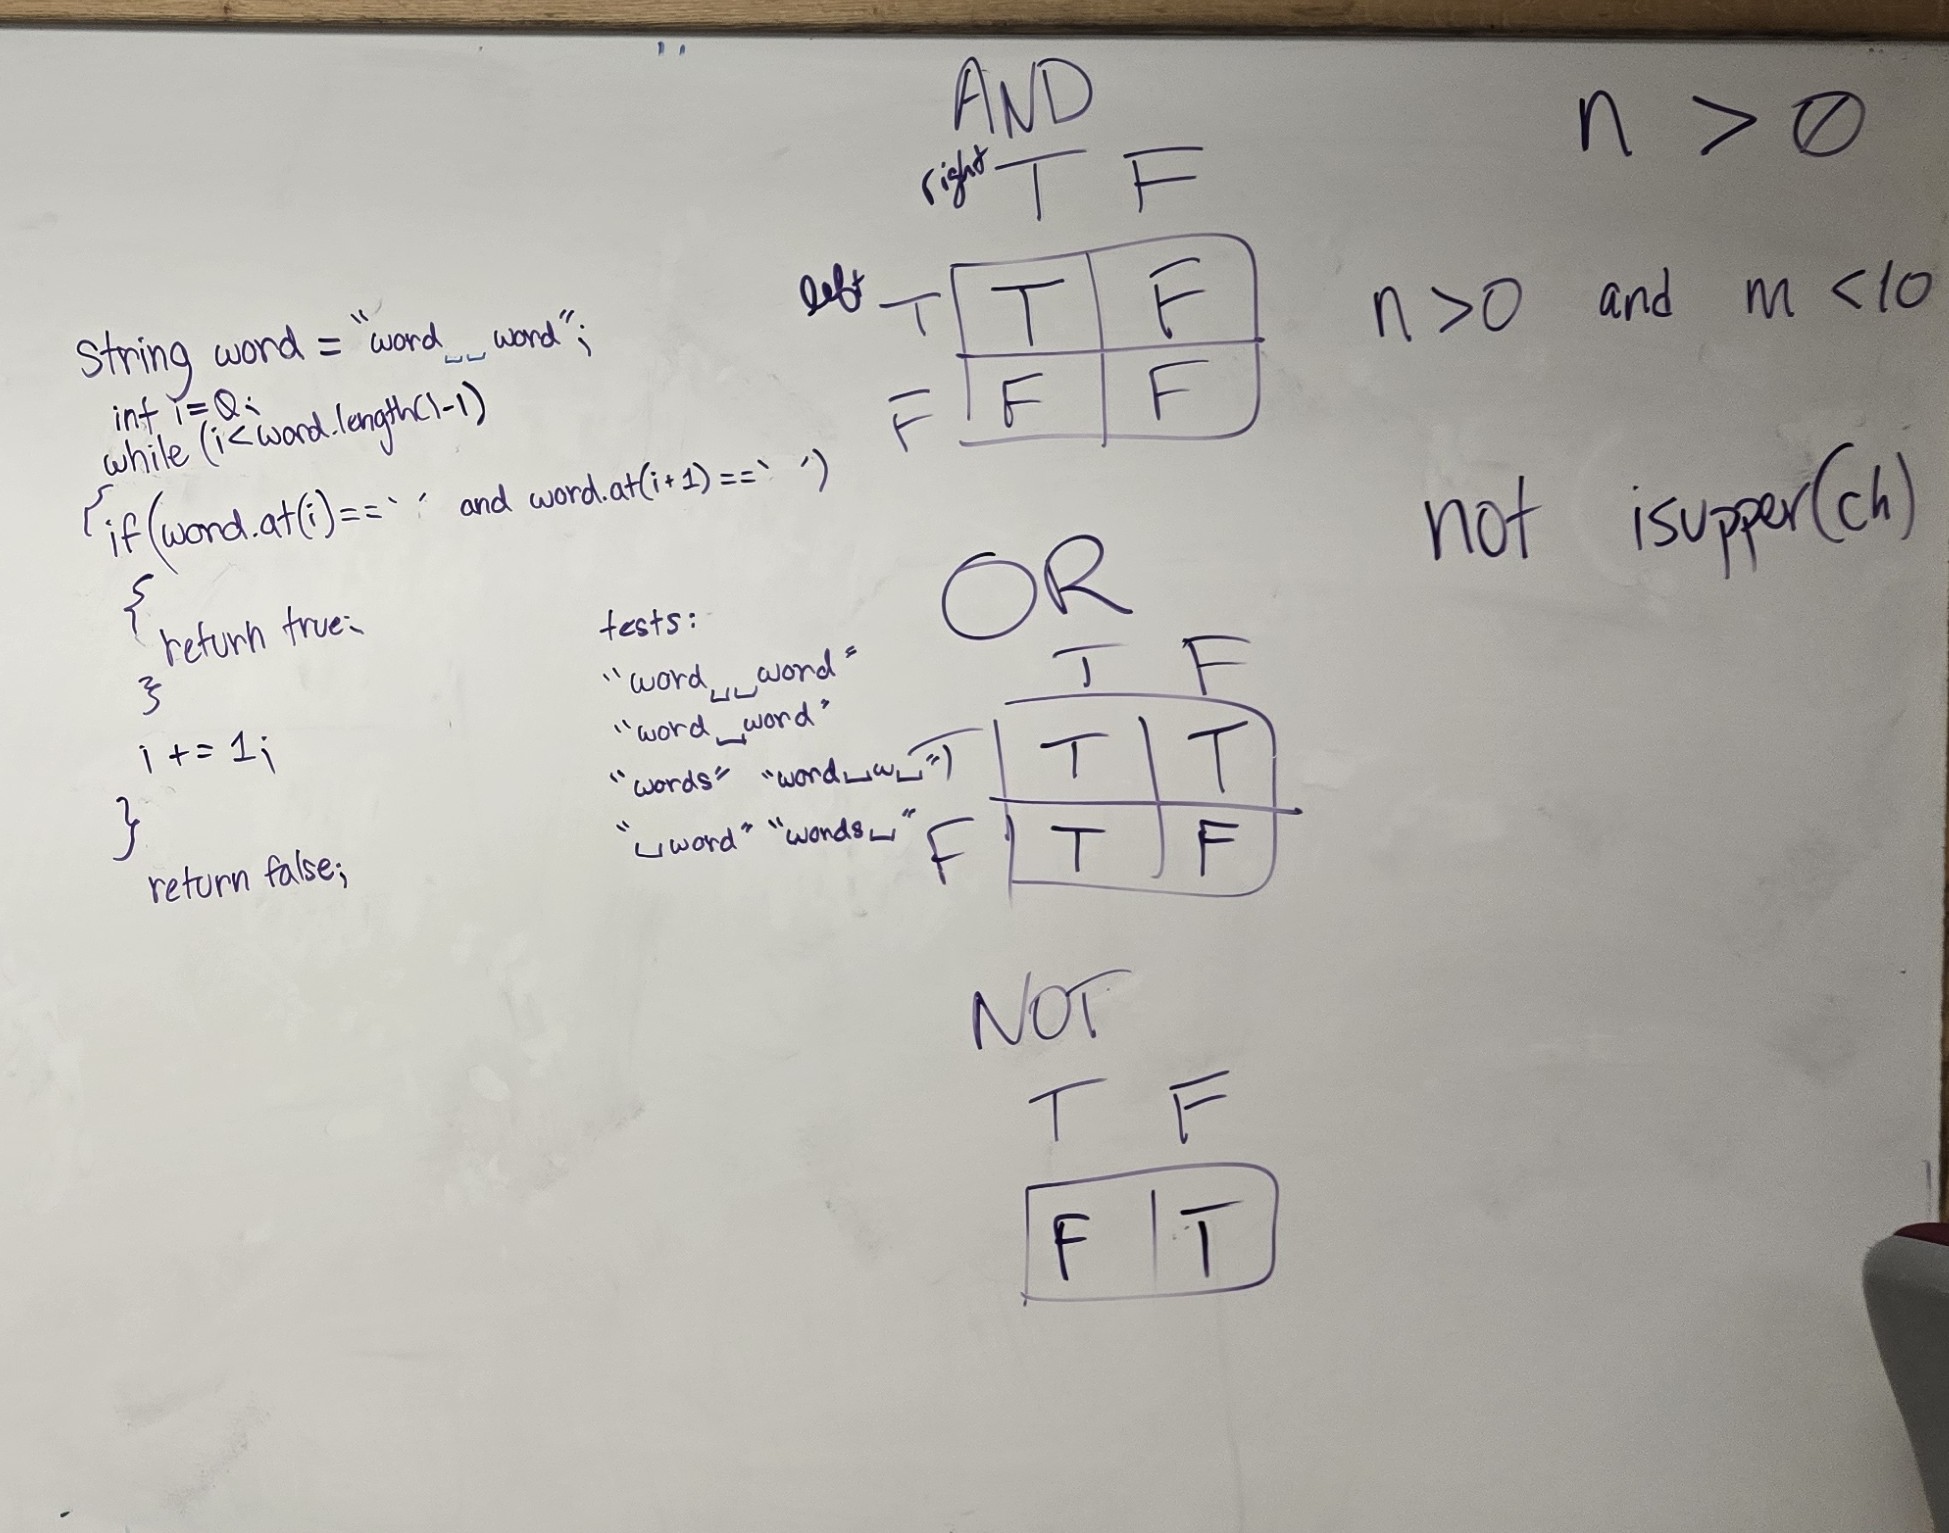 String word = "word␣␣word";
int i=0;
while (i<word.length()-1)
{
if (word.at(i)==' ' and word.at(i+1)==' ')
{
return true;
}
i += 1;
}
return false;
tests:
"word␣␣word"
"word␣word"
"words" "word␣w␣")
"␣word" "words␣"
AND
right T F
left T T F
F F F
OR
T F
T T T
F T F
NOT
T F
F T
n > 0
n>0 and m <10
not isupper(ch)